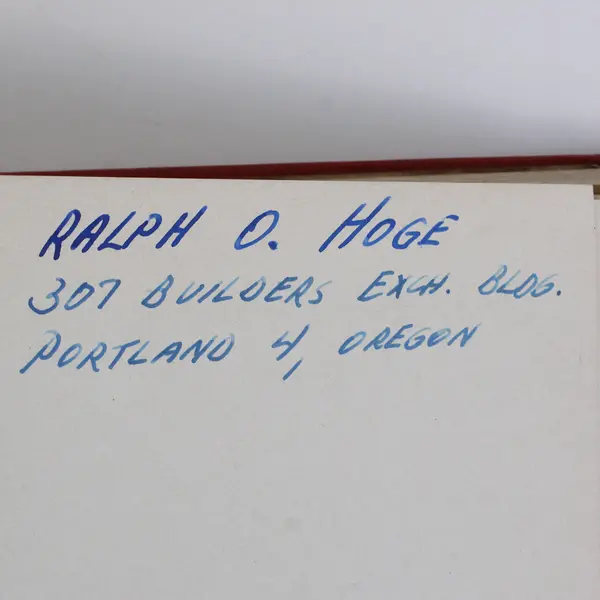 RALPH O. HOGE
307 BUILDERS EXCH. BLDG.
PORTLAND 4, OREGON